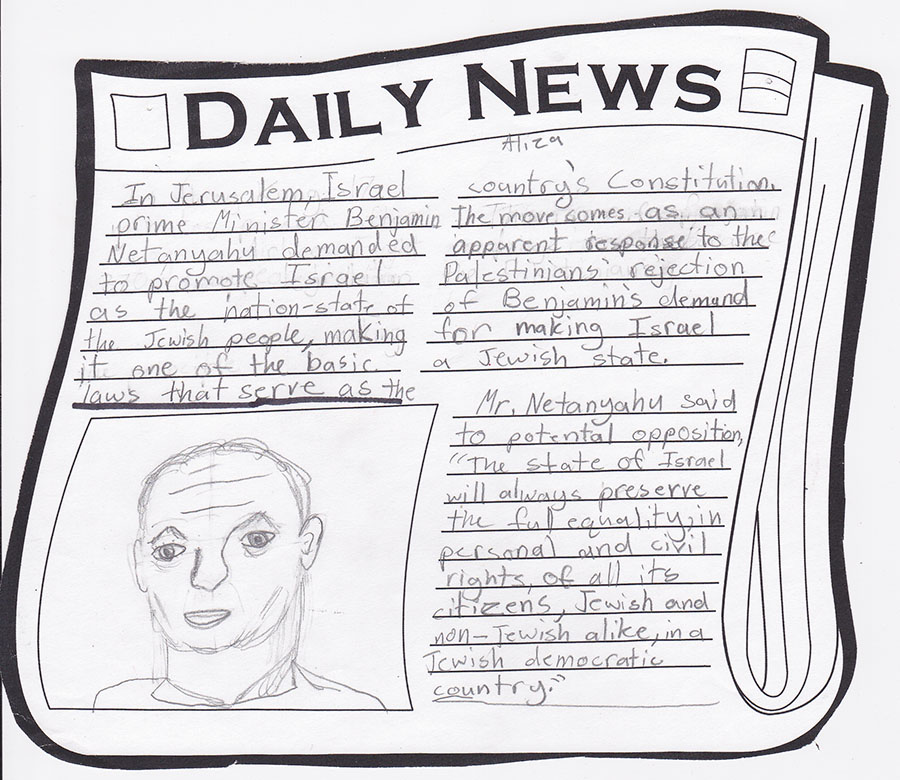 DAILY NEWS
Aliza
In Jerusalem, Israel
prime Minister Benjamin
Netanyahu demanded
to promote Israel
as the nation-state of
the Jewish people, making
it one of the basic
laws that serve as the
country's Constitution.
The move comes as an
apparent response to the
Palestinians' rejection
of Benjamin's demand
for making Israel
a Jewish state.
Mr. Netanyahu said
to potental opposition,
"The state of Israel
will always preserve
the full equality, in
personal and civil
rights, of all its
citizens, Jewish and
non-Jewish alike, in a
Jewish democratic
country."